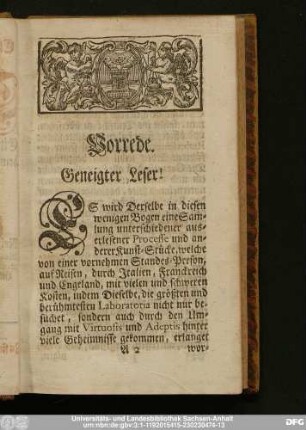 Vorrede.
Geneigter Leser!
ES wird Derselbe in diesen
wenigen Bogen eine Sam-
lung unterschiedener aus-
erlesener Processe und an-
derer Kunst-Stücke, welche
von einer vornehmen Standes-Person,
auf Reisen, durch Italien, Franckreich
und Engeland, mit vielen und schweren
Kosten, indem Dieselbe, die größten und
berühmtesten Laboratoria nicht nur be-
suchet, sondern auch durch den Um-
gang mit Virtuosis und Adeptis hinter
viele Geheimnisse gekommen, erlanget
A 2 wor-
Universitäts- und Landesbibliothek Sachsen-Anhalt
urn:nbn:de:gbv:3:1-1192015415-230230474-13
DFG